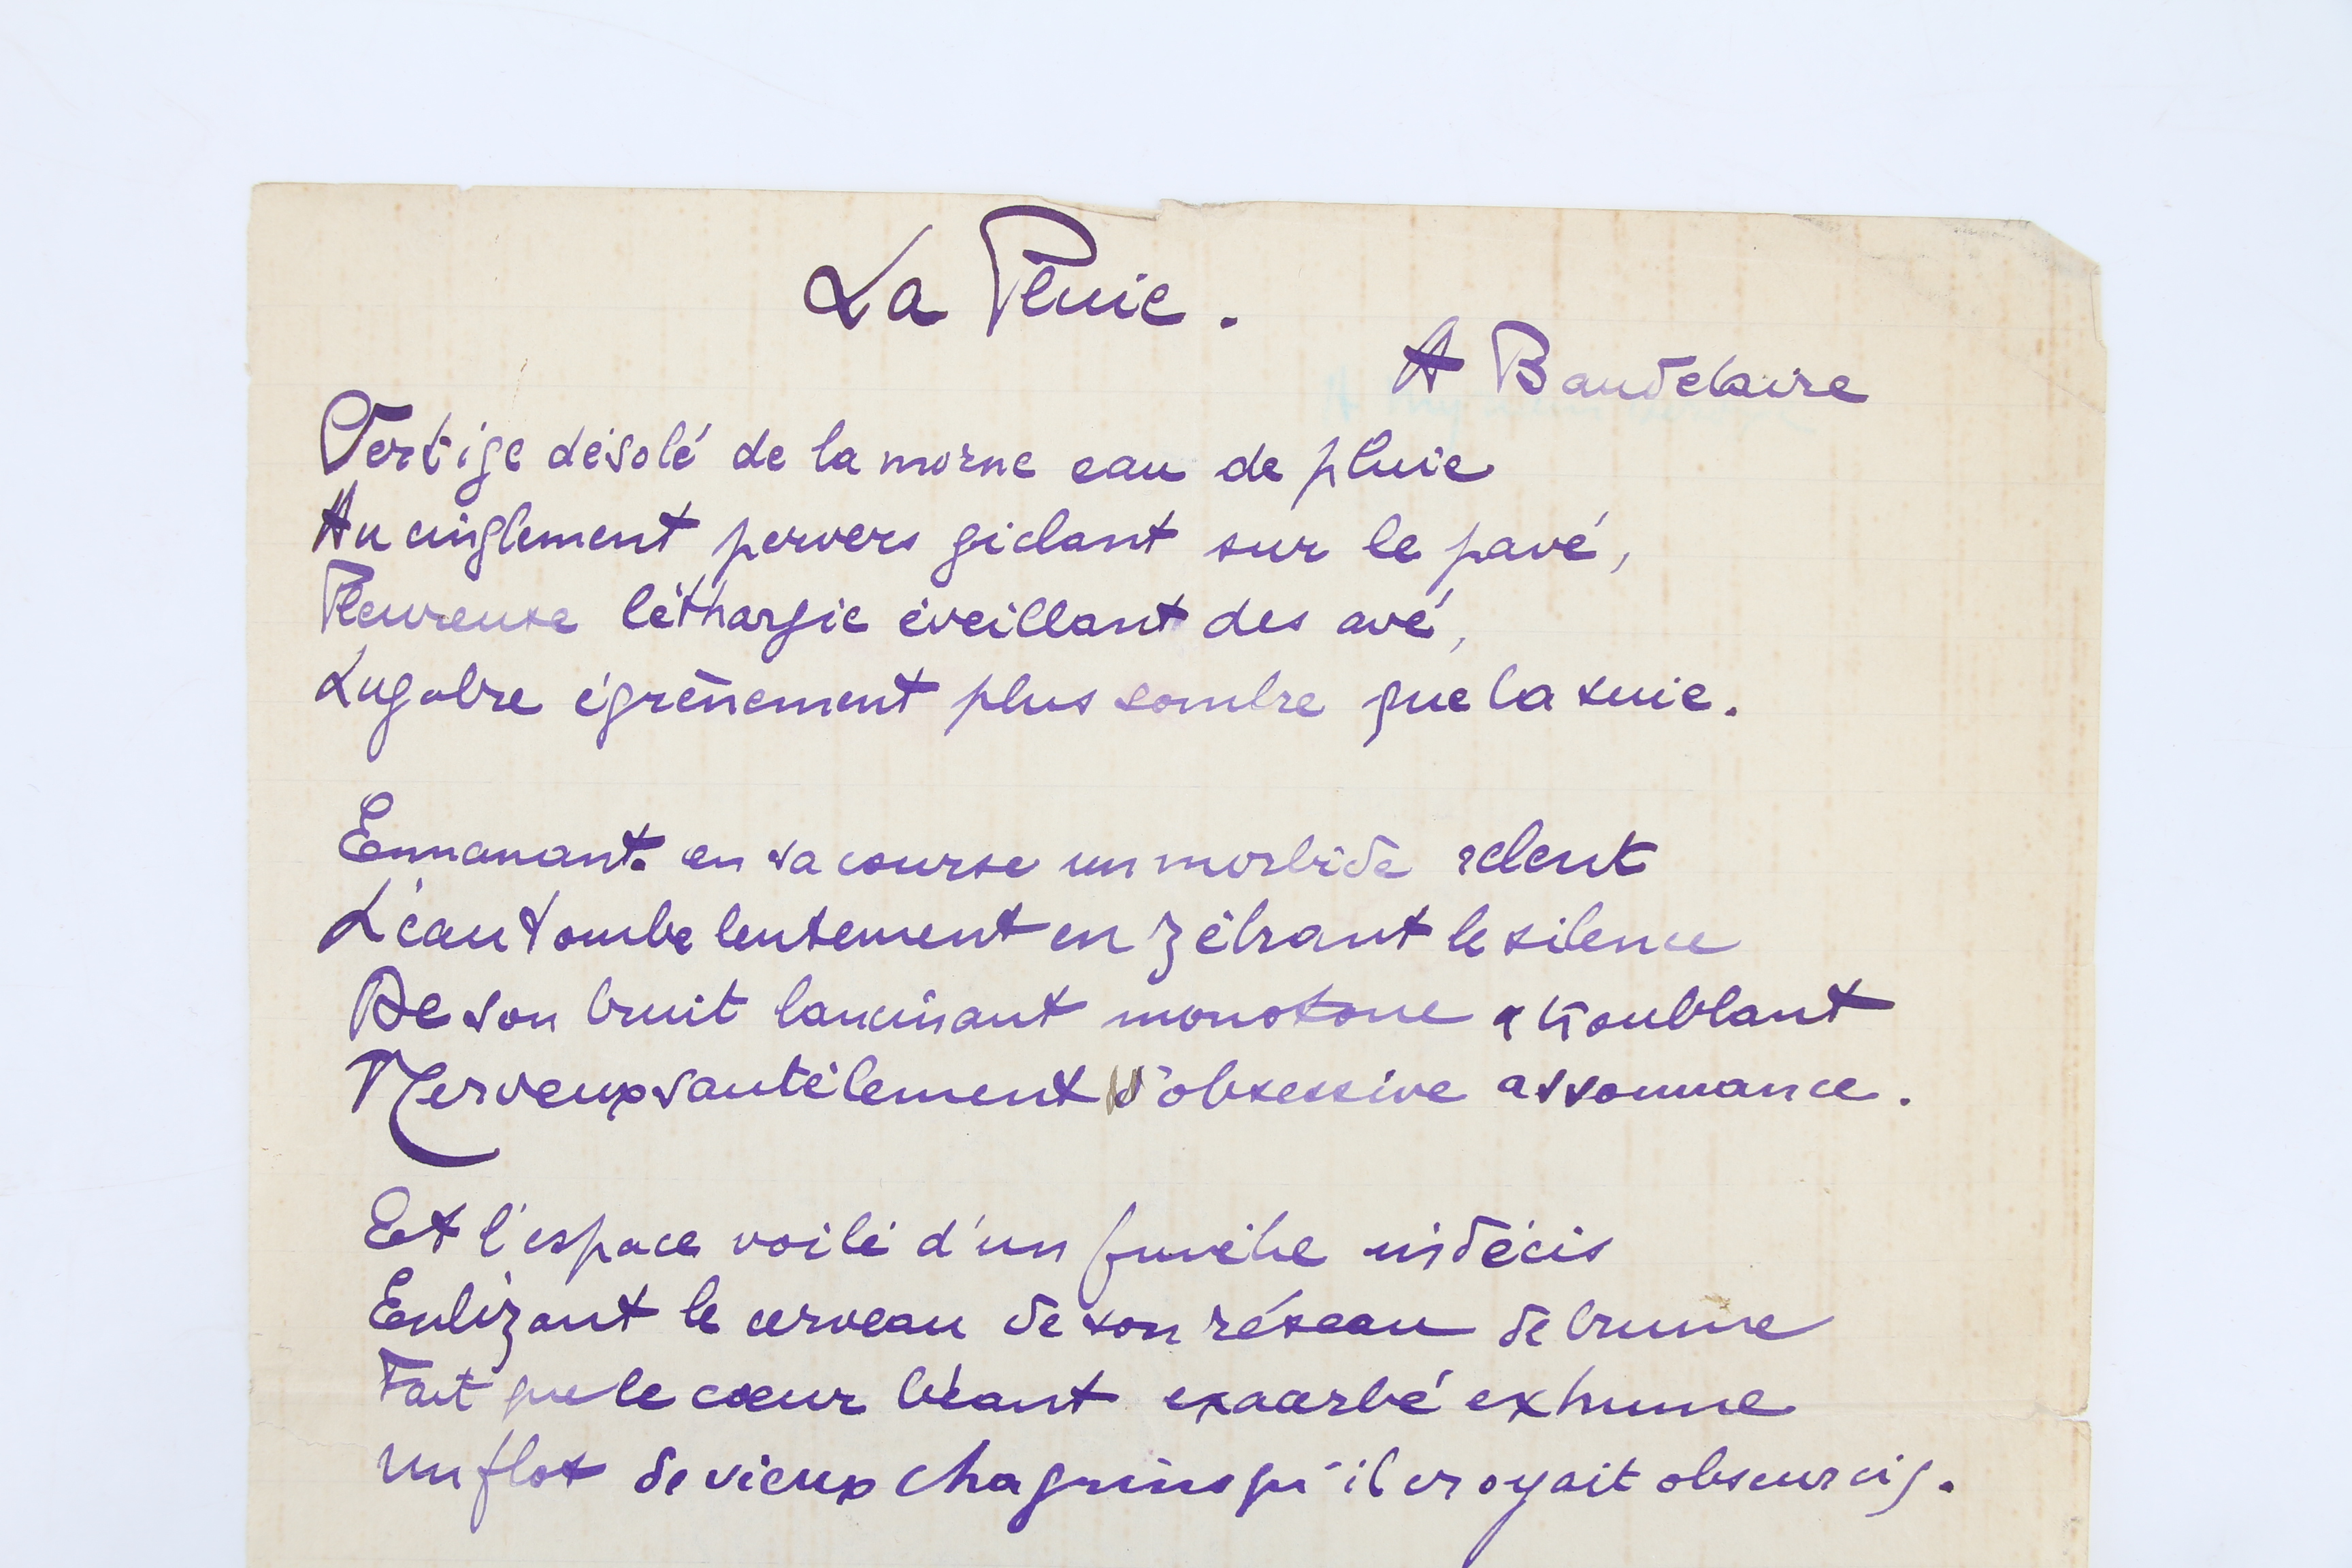 La Pluie.
A Baudelaire
Vertige désolé de la morne eau de pluie
Au cinglement pervers giclant sur le pavé,
Pleureuse léthargie éveillant des avé,
Lugubre égrènement plus sombre que la suie.
Emmanant en sa course un morbide relent
L'eau tombe lentement en zébrant le silence
De son bruit lancinant monotone & troublant
Nerveux sautèlement d'obsessive assonnance.
Et l'espace voilé d'un funèbe indécis
Enlizant le cerveau de son réseau de brume
Fait que le cœur béant exacerbé exhume
Un flot de vieux chagrins qu'il croyait obscurcis.